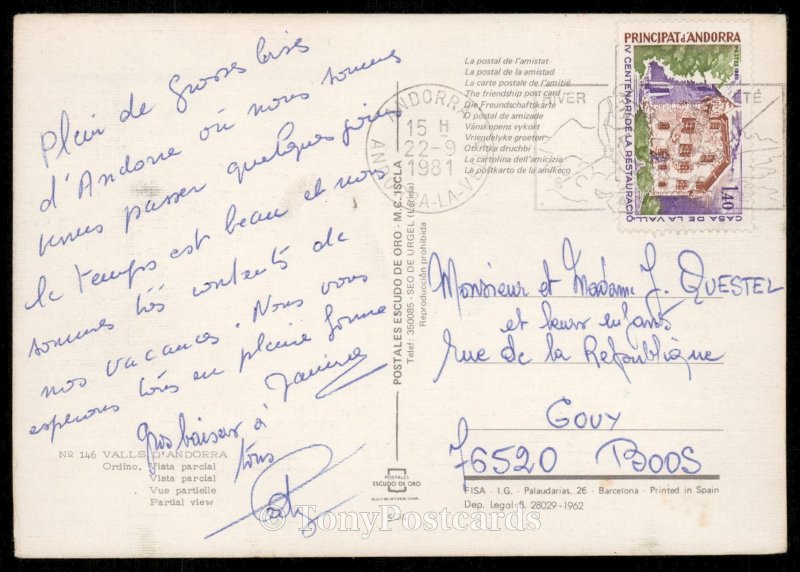 Plein de grosses bises
d'Andorre où nous sommes
venus passer quelques jours
le temps est beau et nous
sommes très contents de
nos vacances. Nous vous
esperons tous en pleine forme
Janine
Gros baisers à
tous
Nº 146 VALLS D'ANDORRA
Ordino. Vista parcial
Vista parcial
Vue partielle
Partial view
POSTALES ESCUDO DE ORO - M.C. ISCLA
Telef: 350085 - SEO DE URGEL (Lerida)
Reproducción prohibida
POSTALES
ESCUDO DE ORO
La postal de l'amistat
La postal de la amistad
La carte postale de l'amitié
The friendship post card
Die Freundschaftskarte
O postal de amizade
Vänskopens vykort
Vriendelyke groeten
Otkritka druchbi
La cartolina dell'amicizia
La postkarto de la amikeco
ANDORRA
15 H
22-9
1981
HIVER
ÉTÉ
PRINCIPAT d'ANDORRA
IV CENTENARI DE LA RESTAURACIÓ
CASA DE LA VALL
1,40
Monsieur et Madame J. QUESTEL
et leurs enfants
rue de la République
GOUY
76520 BOOS
FISA - I.G. - Palaudarias, 26 - Barcelona - Printed in Spain
Dep. Legal B. 28029-1962
© TonyPostcards